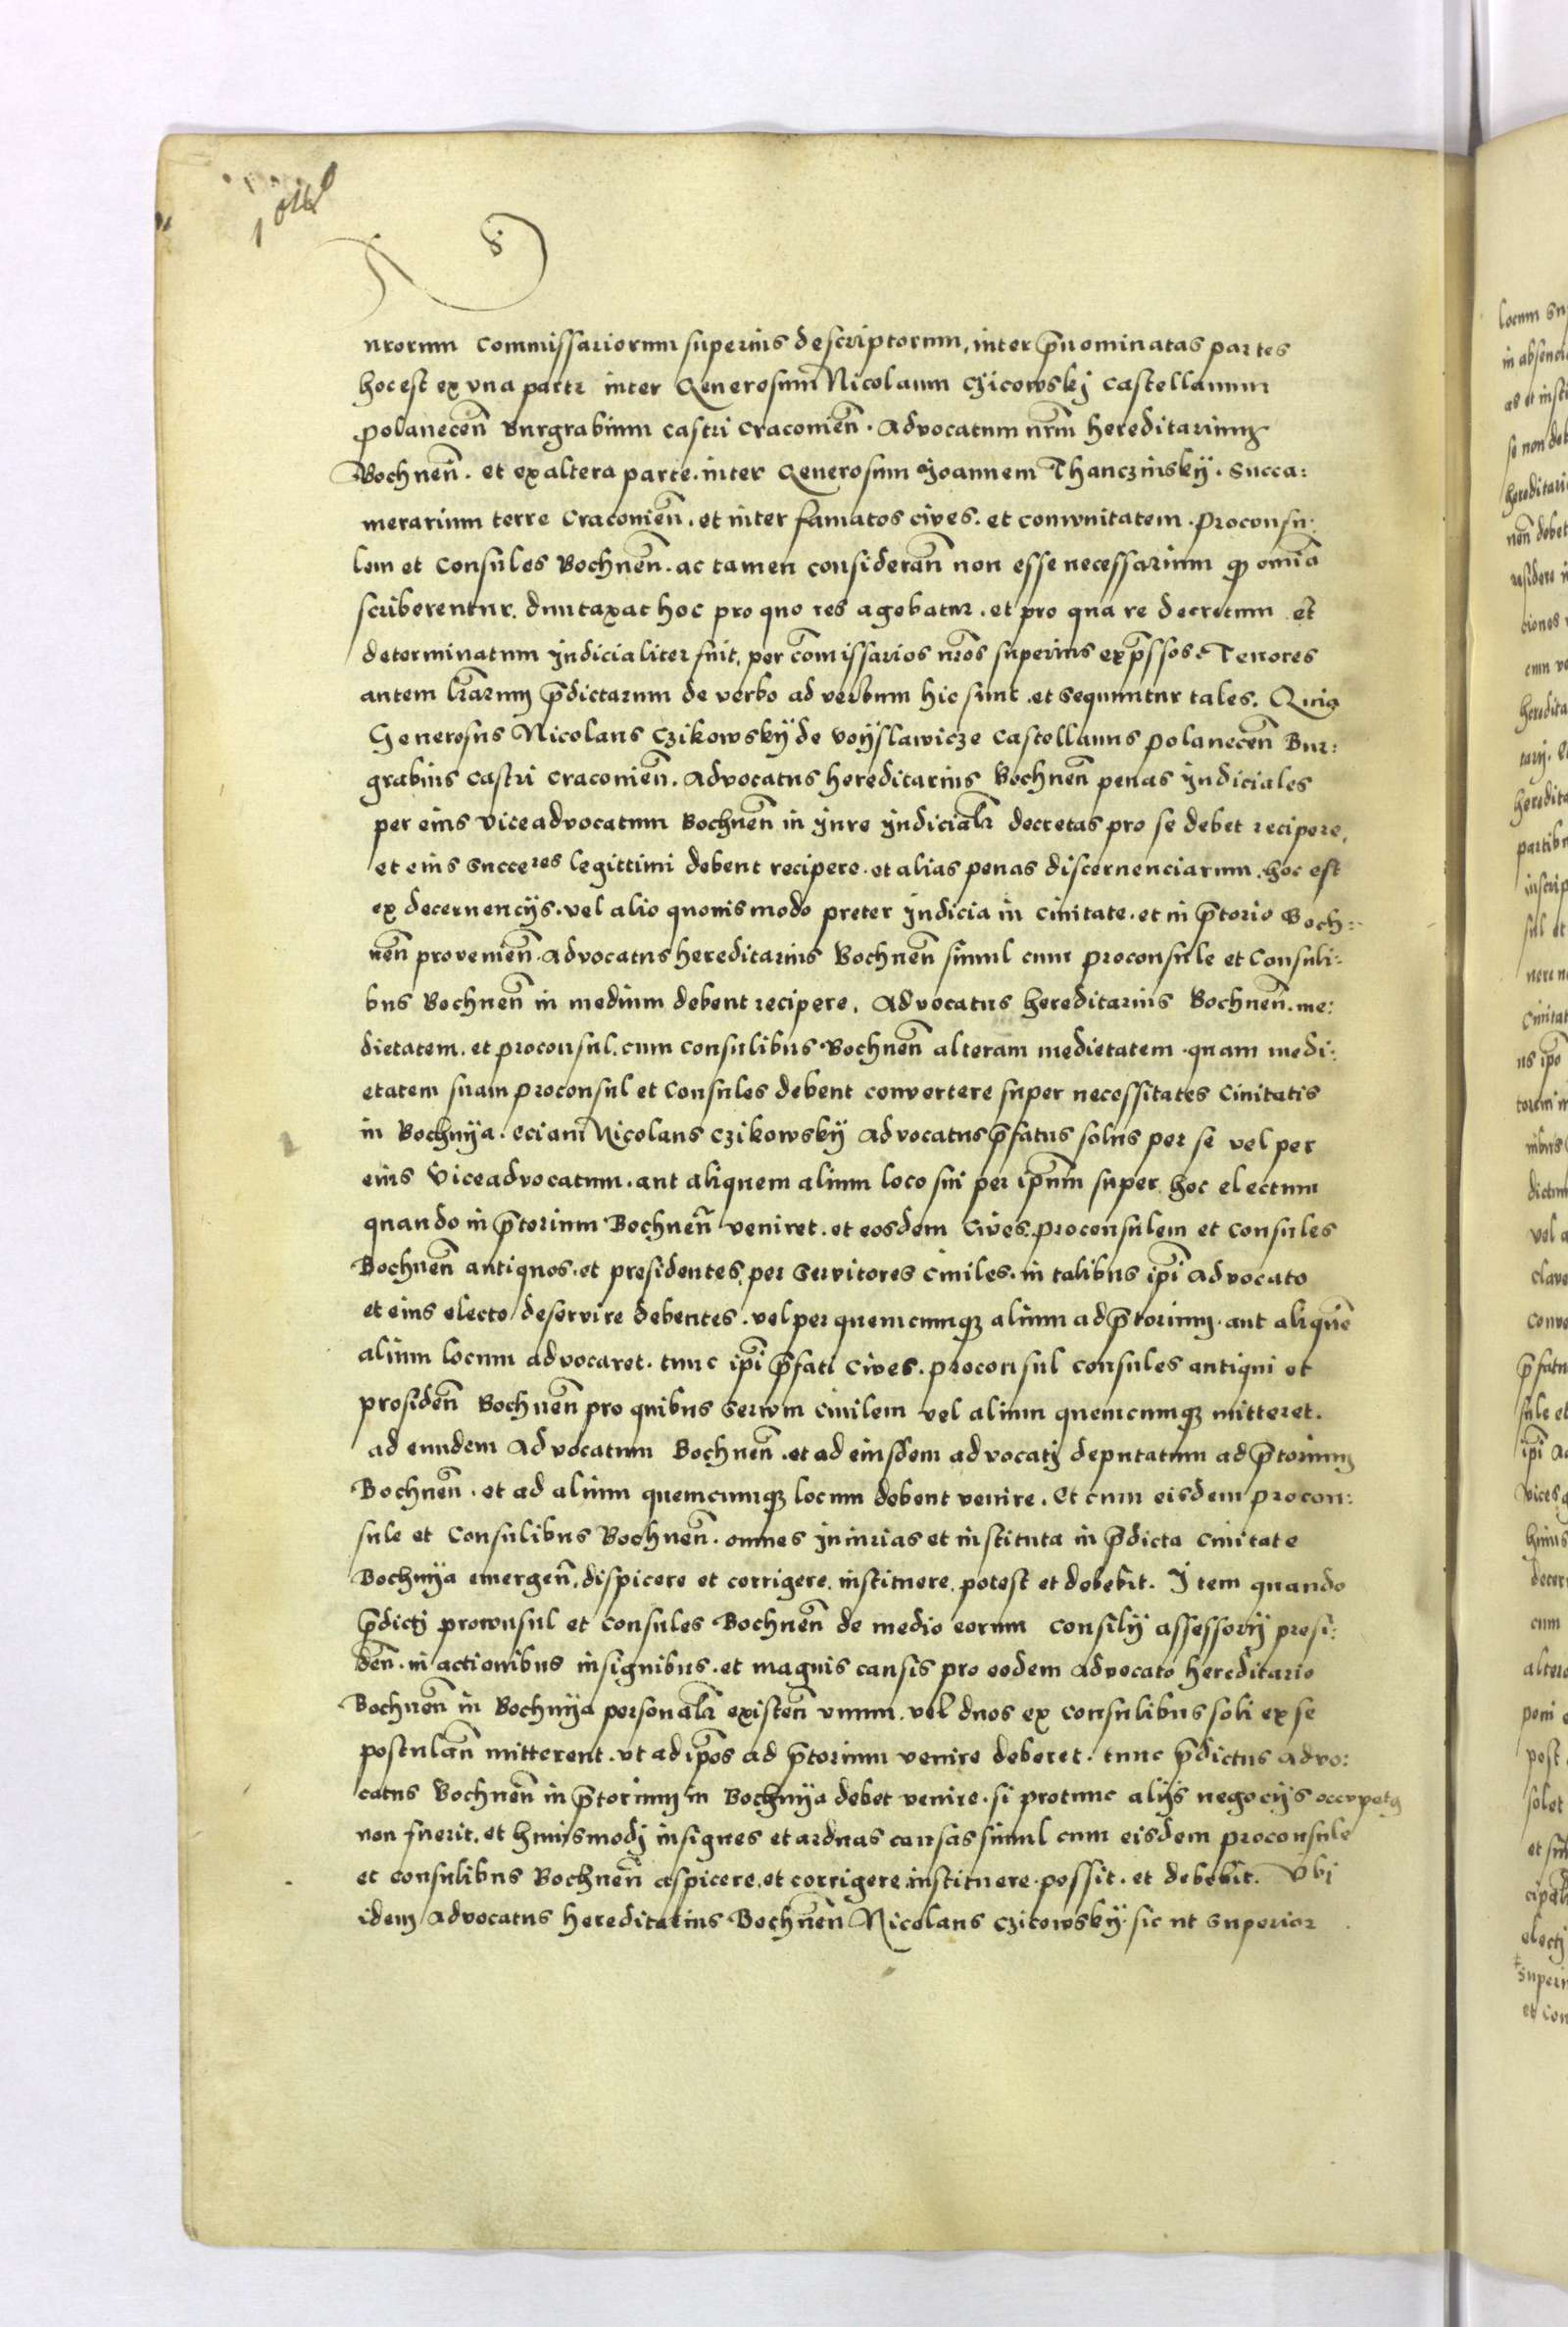 nrorum Commissariorum superius descriptorum, inter p̄nominatas partes
hoc est ex vna parte inter Generosum Nicolaum Czicowskj Castellanum
polanecen̄ Burgrabium Castri Cracouien̄. Advocatum nr̄m hereditarium
Bochnen̄. et ex altera parte. inter Generosum Joannem Thanczinskÿ. Succa:
merarium terre Cracouien̄. et inter famatos cives. et comvnitatem. Proconsu:
lem et Consules Bochnen̄. ac tamen consideran̄ non esse necessarium qꝫ omīa
scriberentur. duntaxat hoc pro quo res agebatur. et pro qua re decretum et
determinatum Judicialiter fuit, per Com̄issarios nr̄os superius exp̄ssos. Tenores
autem lr̄arum p̄dictarum de verbo ad verbum hic sunt. et sequuntur tales. Quia
Generosus Nicolaus Czikowskÿ de Voÿslawicze Castellanus polanecen̄ Bur:
grabius Castri Cracouien̄. Advocatus hereditarius Bochnen̄ penas Judiciales
per eius Viceadvocatum Bochnen̄ in Jure Judicialr̄ decretas pro se debet recipere,
et eius Succeres legittimi debent recipere. et alias penas discernenciarum. hoc est
ex decernencÿs. vel alio quouismodo preter Judicia in Ciuitate. et in p̄torio Boch:
nen̄ provenien̄. Advocatus hereditarius Bochnen̄ simul cum Proconsule et Consuli:
bus Bochnen̄ in medium debent recipere. Advocatus hereditarius Bochnen̄. me:
dietatem. et Proconsul. cum Consulibus Bochnen̄ alteram medietatem. quam medi:
etatem suam Proconsul et Consules debent convertere super necessitates Ciuitatis
in Bochnÿa. eciam Nicolaus Czikowskÿ Advocatus p̄fatus solus per se vel per
eius Viceadvocatum. aut aliquem alium loco sui per ip̄um super hoc electum
quando in p̄torium Bochnen̄ veniret. et eosdem Cives. Proconsulem et Consules
Bochnen̄ antiquos. et presidentes, per Servitores Ciuiles. in talibus ip̄i Advocato
et eius electo deservire debentes. vel per quemcumqꝫ alium ad p̄torium. aut aliquem̄
alium locum advocaret. tunc ip̄i p̄fati Cives. Proconsul Consules antiqui et
presiden̄ Bochnen̄ pro quibus Servum Ciuilem vel alium quemcumqꝫ mitteret.
ad eundem Advocatum Bochnen̄. et ad eiusdem advocatj deputatum ad p̄torium
Bochnen̄. et ad alium quemcumqꝫ locum debent venire. et cum eisdem procon:
sule et Consulibus Bochnen̄. omnes Iniurias et instituta in p̄dicta Ciuitate
Bochnÿa emergen̄. dispicere et corrigere. instituere. potest et debebit. Item quando
p̄dictj proconsul et Consules Bochnen̄ de medio eorum Consilÿ assessorÿ presi:
den̄. in actionibus insignibus. et magnis causis pro eodem Advocato hereditario
Bochnen̄ in Bochnÿa personalr̄ existen̄ vnum. vel duos ex Consulibus soli ex se
postulan̄ mitterent. vt ad ip̄os ad p̄torium venire deberet. tunc p̄dictus Advo:
catus Bochnen̄ in p̄torium in Bochnÿa debet venire. si protunc alÿs negocÿs occupatꝫ
non fuerit. et huiusmodj insignes et arduas causas simul cum eisdem proconsule
et Consulibus Bochnen̄ aspicere. et corrigere. instituere. possit. et debebit. Vbi
idem Advocatus hereditarius Bochnen̄ Nicolaus Czikowskÿ. sic ut Superior